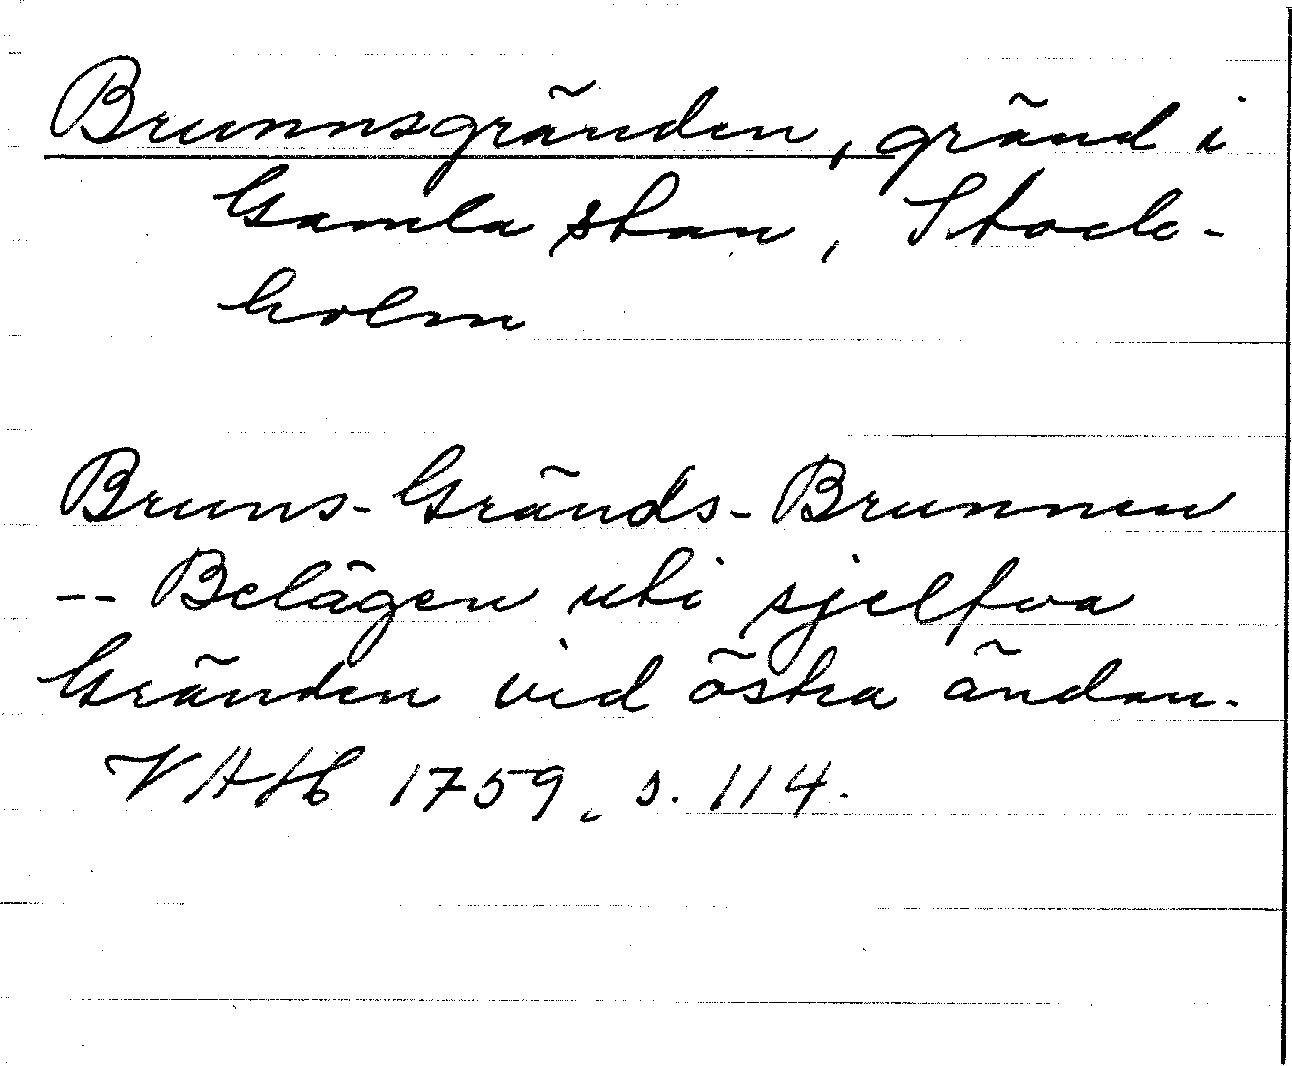 Brunnsgränden, gränd i
Gamla stan, Stock-
holm
Bruns-Gränds-Brunnen
-- Belägen uti sjelfva
Gränden vid östra ändan.
VAH 1759, s. 114.